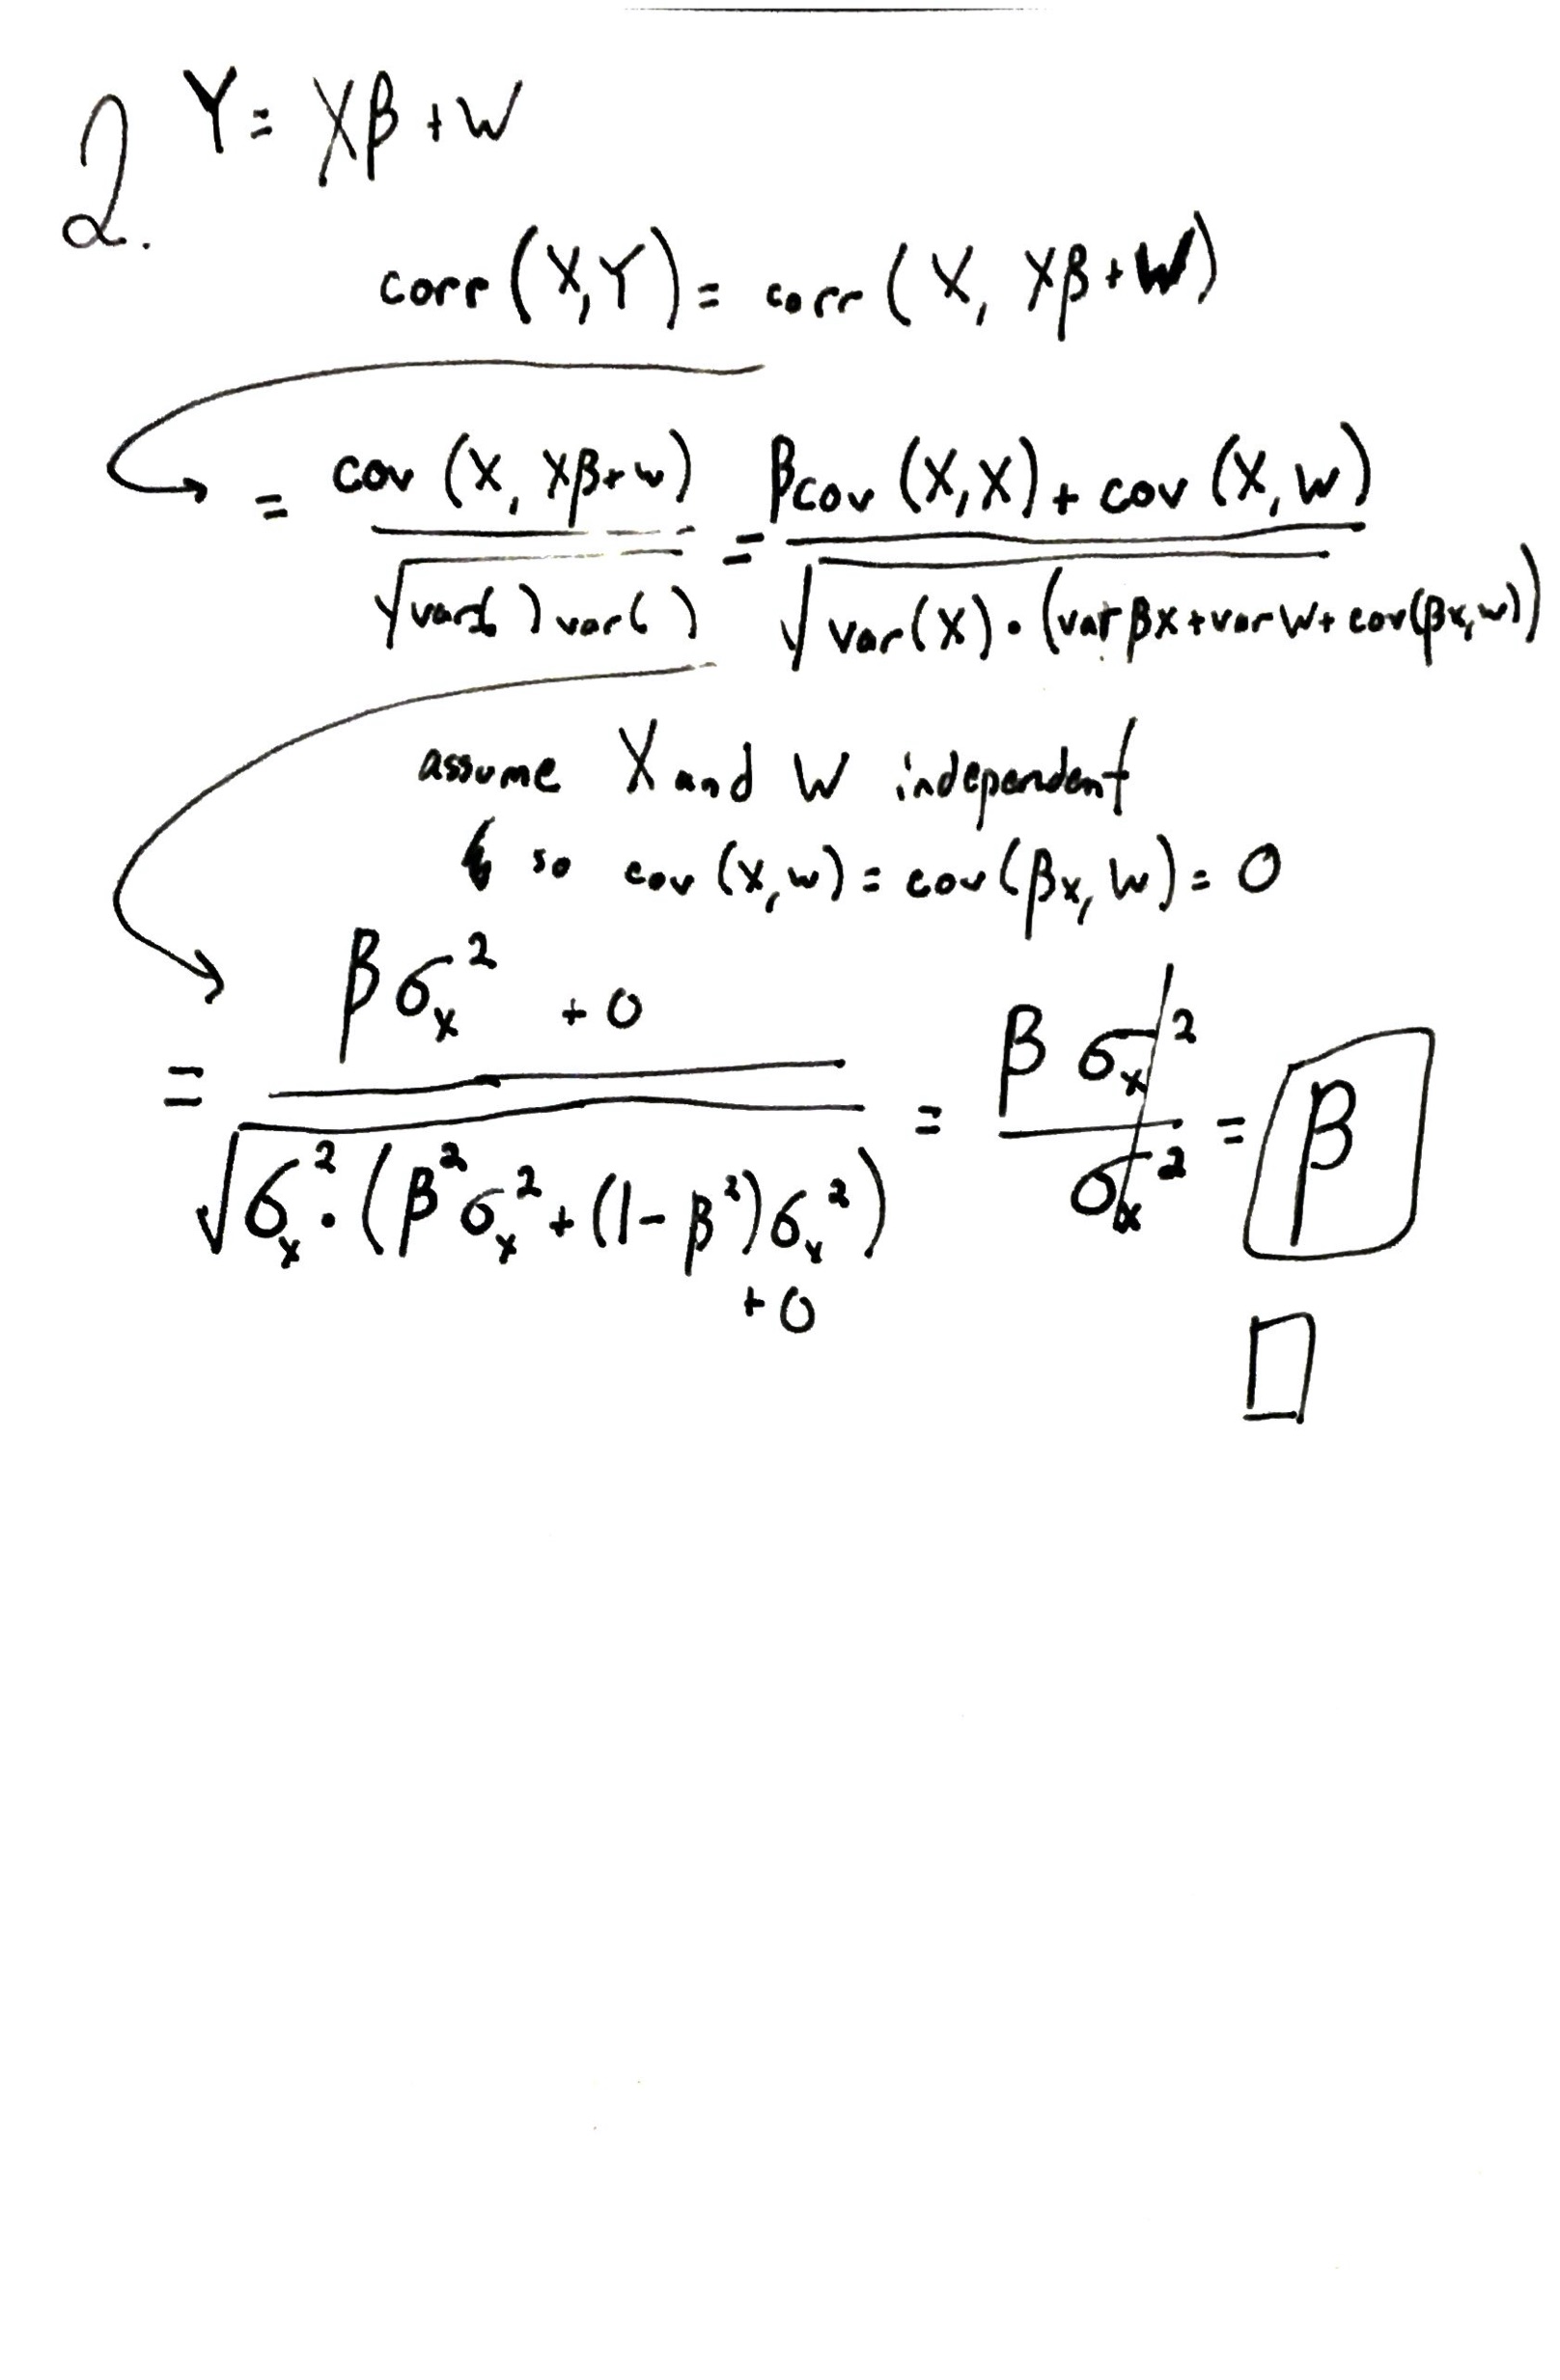 2. Y = Xβ + W
corr(X,Y) = corr(X, Xβ + W)
= cov(X, Xβ+w) / √(var( ) var( )) = βcov(X,X) + cov(X,W) / √(var(X) · (var βx + var W + cov(βx,w)))
assume X and W independent
so cov(x,w) = cov(βx, W) = 0
= βσx² + 0 / √(σx² · (β²σx² + (1-β²)σx²) + 0) = βσx² / σx² = β
□